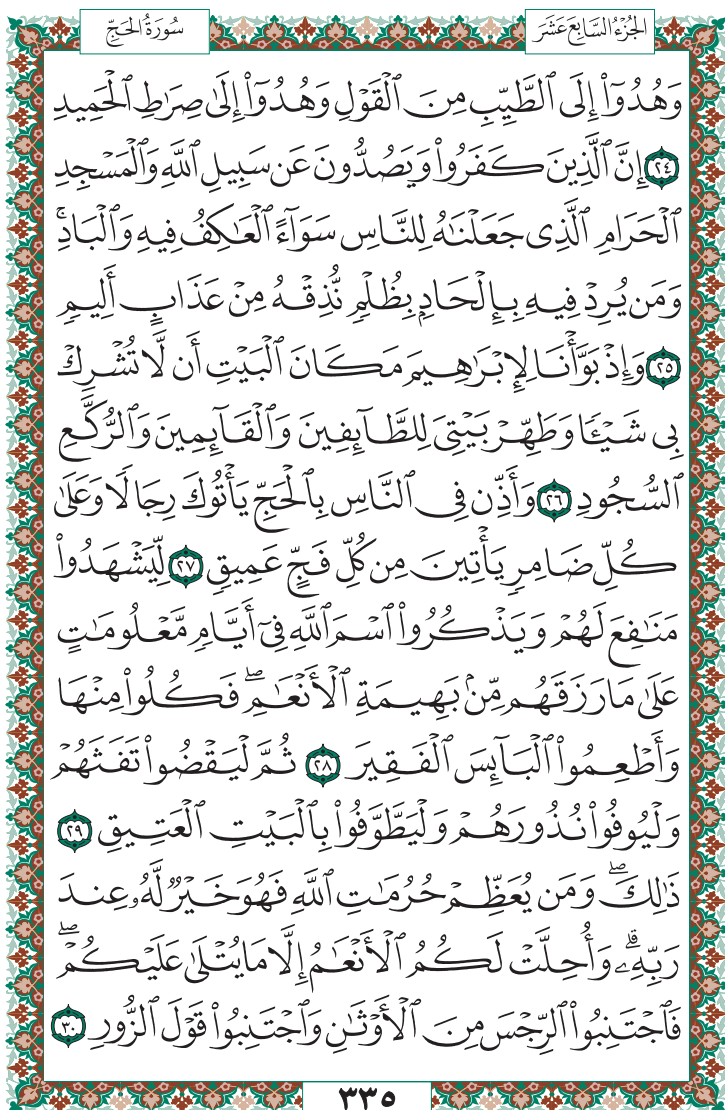 الجُزْءُ السَّابِعَ عَشَرَ
سُورَةُ الحَجّ
وَهُدُوٓاْ إِلَى ٱلطَّيِّبِ مِنَ ٱلۡقَوۡلِ وَهُدُوٓاْ إِلَىٰ صِرَٰطِ ٱلۡحَمِيدِ
٢٤ إِنَّ ٱلَّذِينَ كَفَرُواْ وَيَصُدُّونَ عَن سَبِيلِ ٱللَّهِ وَٱلۡمَسۡجِدِ
ٱلۡحَرَامِ ٱلَّذِي جَعَلۡنَٰهُ لِلنَّاسِ سَوَآءً ٱلۡعَٰكِفُ فِيهِ وَٱلۡبَادِۚ
وَمَن يُرِدۡ فِيهِ بِإِلۡحَادِۭ بِظُلۡمٖ نُّذِقۡهُ مِنۡ عَذَابٍ أَلِيمٖ
٢٥ وَإِذۡ بَوَّأۡنَا لِإِبۡرَٰهِيمَ مَكَانَ ٱلۡبَيۡتِ أَن لَّا تُشۡرِكۡ
بِي شَيۡـٔٗا وَطَهِّرۡ بَيۡتِيَ لِلطَّآئِفِينَ وَٱلۡقَآئِمِينَ وَٱلرُّكَّعِ
ٱلسُّجُودِ ٢٦ وَأَذِّن فِي ٱلنَّاسِ بِٱلۡحَجِّ يَأۡتُوكَ رِجَالٗا وَعَلَىٰ
كُلِّ ضَامِرٖ يَأۡتِينَ مِن كُلِّ فَجٍّ عَمِيقٖ ٢٧ لِّيَشۡهَدُواْ
مَنَٰفِعَ لَهُمۡ وَيَذۡكُرُواْ ٱسۡمَ ٱللَّهِ فِيٓ أَيَّامٖ مَّعۡلُومَٰتٍ
عَلَىٰ مَا رَزَقَهُم مِّنۢ بَهِيمَةِ ٱلۡأَنۡعَٰمِۖ فَكُلُواْ مِنۡهَا
وَأَطۡعِمُواْ ٱلۡبَآئِسَ ٱلۡفَقِيرَ ٢٨ ثُمَّ لۡيَقۡضُواْ تَفَثَهُمۡ
وَلۡيُوفُواْ نُذُورَهُمۡ وَلۡيَطَّوَّفُواْ بِٱلۡبَيۡتِ ٱلۡعَتِيقِ ٢٩
ذَٰلِكَۖ وَمَن يُعَظِّمۡ حُرُمَٰتِ ٱللَّهِ فَهُوَ خَيۡرٞ لَّهُۥ عِندَ
رَبِّهِۦۗ وَأُحِلَّتۡ لَكُمُ ٱلۡأَنۡعَٰمُ إِلَّا مَا يُتۡلَىٰ عَلَيۡكُمۡۖ
فَٱجۡتَنِبُواْ ٱلرِّجۡسَ مِنَ ٱلۡأَوۡثَٰنِ وَٱجۡتَنِبُواْ قَوۡلَ ٱلزُّورِ ٣٠
٣٣٥